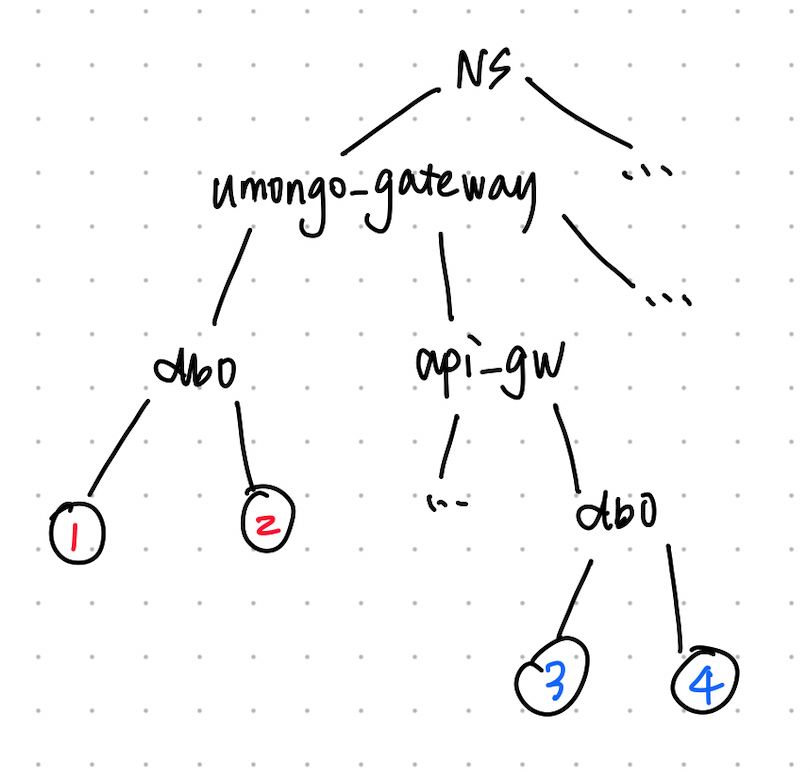 NS
umongo_gateway
...
...
db0
api_gw
1
2
...
db0
3
4